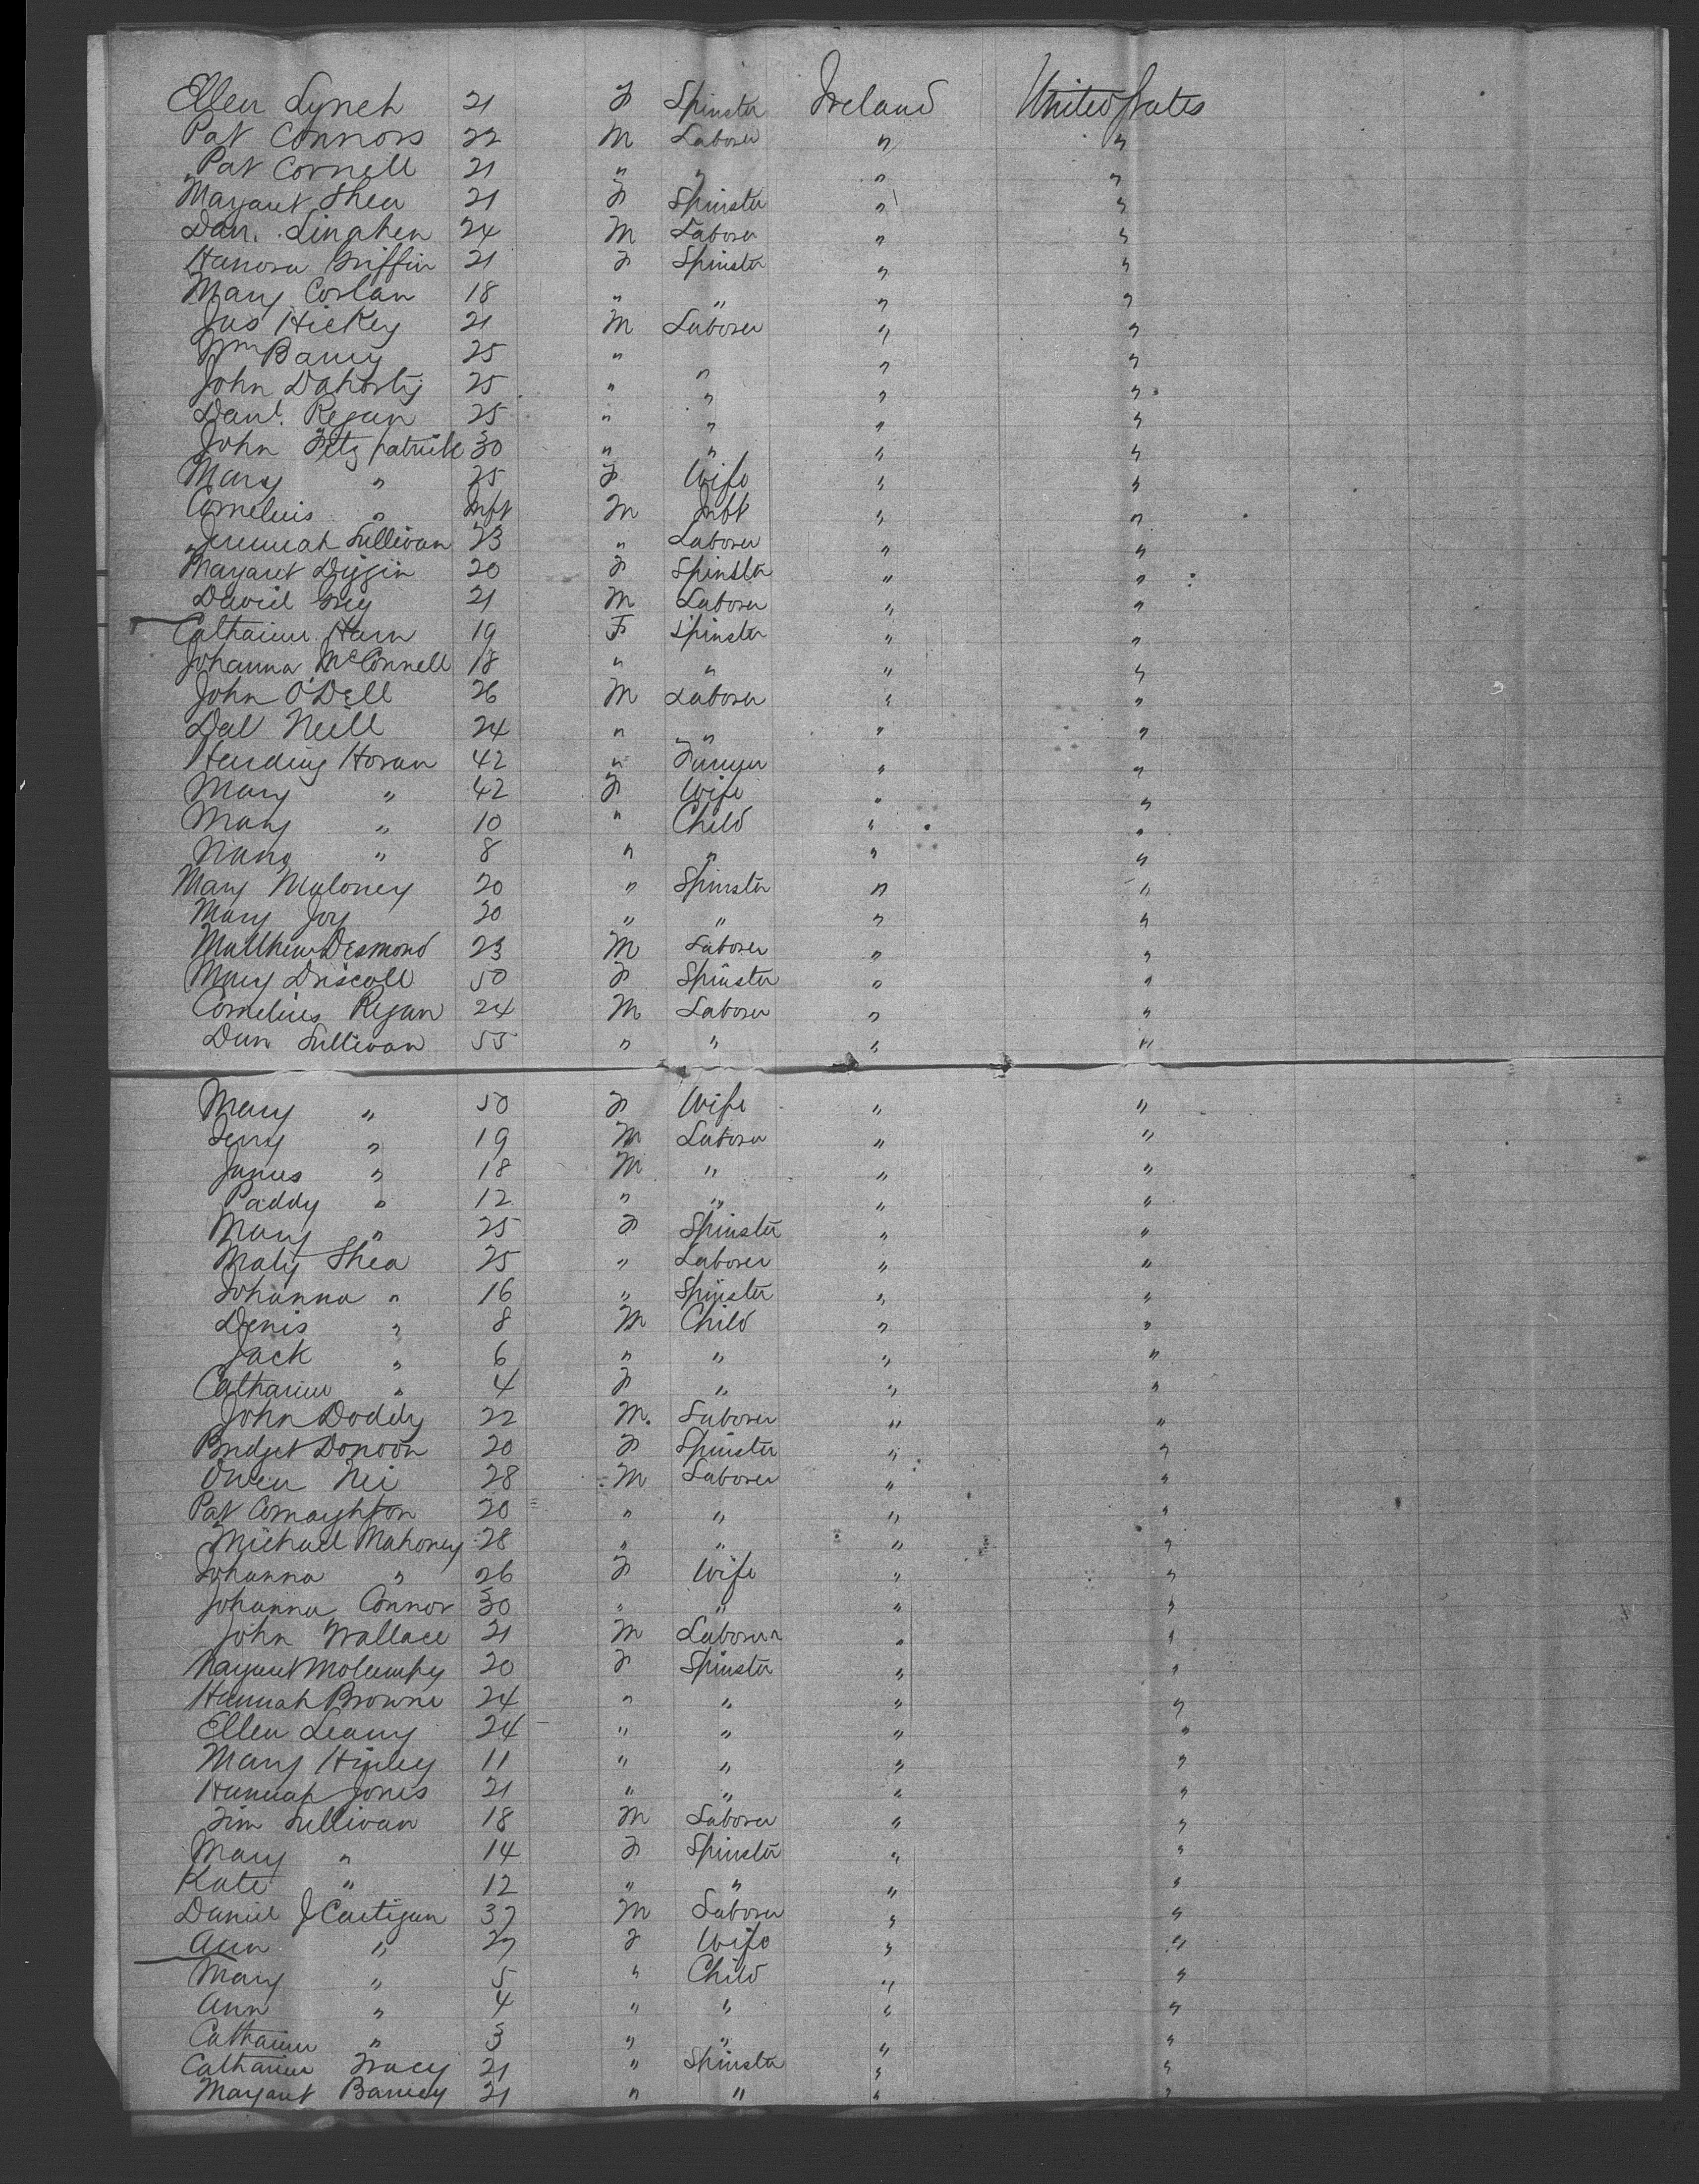 Ellen Lynch 21 F Spinster Ireland United States
Pat Connors 22 M Laborer " "
Pat Connell 21 " " " "
Margaret Shea 21 F Spinster " "
Dan. Linahen 24 M Laborer " "
Hanora Griffin 21 F Spinster " "
Mary Coslan 18 " " " "
Jas Hickey 21 M Laborer " "
Wm Barry 25 " " " "
John Dahorty 25 " " " "
Danl. Regan 25 " " " "
John Fitzpatrick 30 " " " "
Mary " 25 F Wife " "
Cornelius " Inft M Inft " "
Jeremiah Sullivan 23 " Laborer " "
Margaret Diggin 20 F Spinster " "
David 21 M Laborer " "
Catharine 19 F Spinster " "
Johanna McConnell 18 " " " "
John O'Dell 26 M Laborer " "
Dal Neill 24 " " " "
Harding Horan 42 " " "
Mary " 42 F Wife " "
Mary " 10 " Child " "
" 8 " " " "
Mary Maloney 20 " Spinster " "
Mary Joy 20 " " " "
Matthew Desmond 23 M Laborer " "
Mary Driscoll 50 F Spinster " "
Cornelius Regan 24 M Laborer " "
Dan Sullivan 55 " " " "
Mary " 50 F Wife " "
Jerry " 19 M Laborer " "
James " 18 M " " "
Paddy " 12 " " " "
Mary " 25 F Spinster " "
Maty Shea 25 " Laborer " "
Johanna " 16 " Spinster " "
Denis " 8 M Child " "
Jack " 6 " " " "
Catharine " 4 F " " "
John Doddy 22 M. Laborer " "
Bridget Donoon 20 F Spinster " "
Owen Nei 28 M Laborer " "
Pat Conaughton 20 " " " "
Michael Mahoney 28 " " " "
Johanna " 26 F Wife " "
Johanna Connor 30 " " " "
John Wallace 21 M Laborer " "
Margaret Molumphy 20 F Spinster " "
Hannah Browne 24 " " " "
Ellen Leary 24 " " " "
Mary 11 " " " "
Hannah Jones 21 " " " "
Tim Sullivan 18 M Laborer " "
Mary " 14 F Spinster " "
Kate " 12 " " " "
Daniel J Cartigan 37 M Laborer " "
Ann " 27 F Wife " "
Mary " 5 " Child " "
Ann " 4 " " " "
Catharine " 3 " " " "
Catharine Tracy 21 " Spinster " "
Margaret 21 " " " "